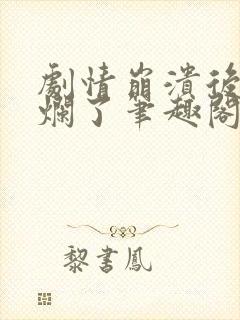 劇情崩潰後
爛了筆趣閣
黎書鳳